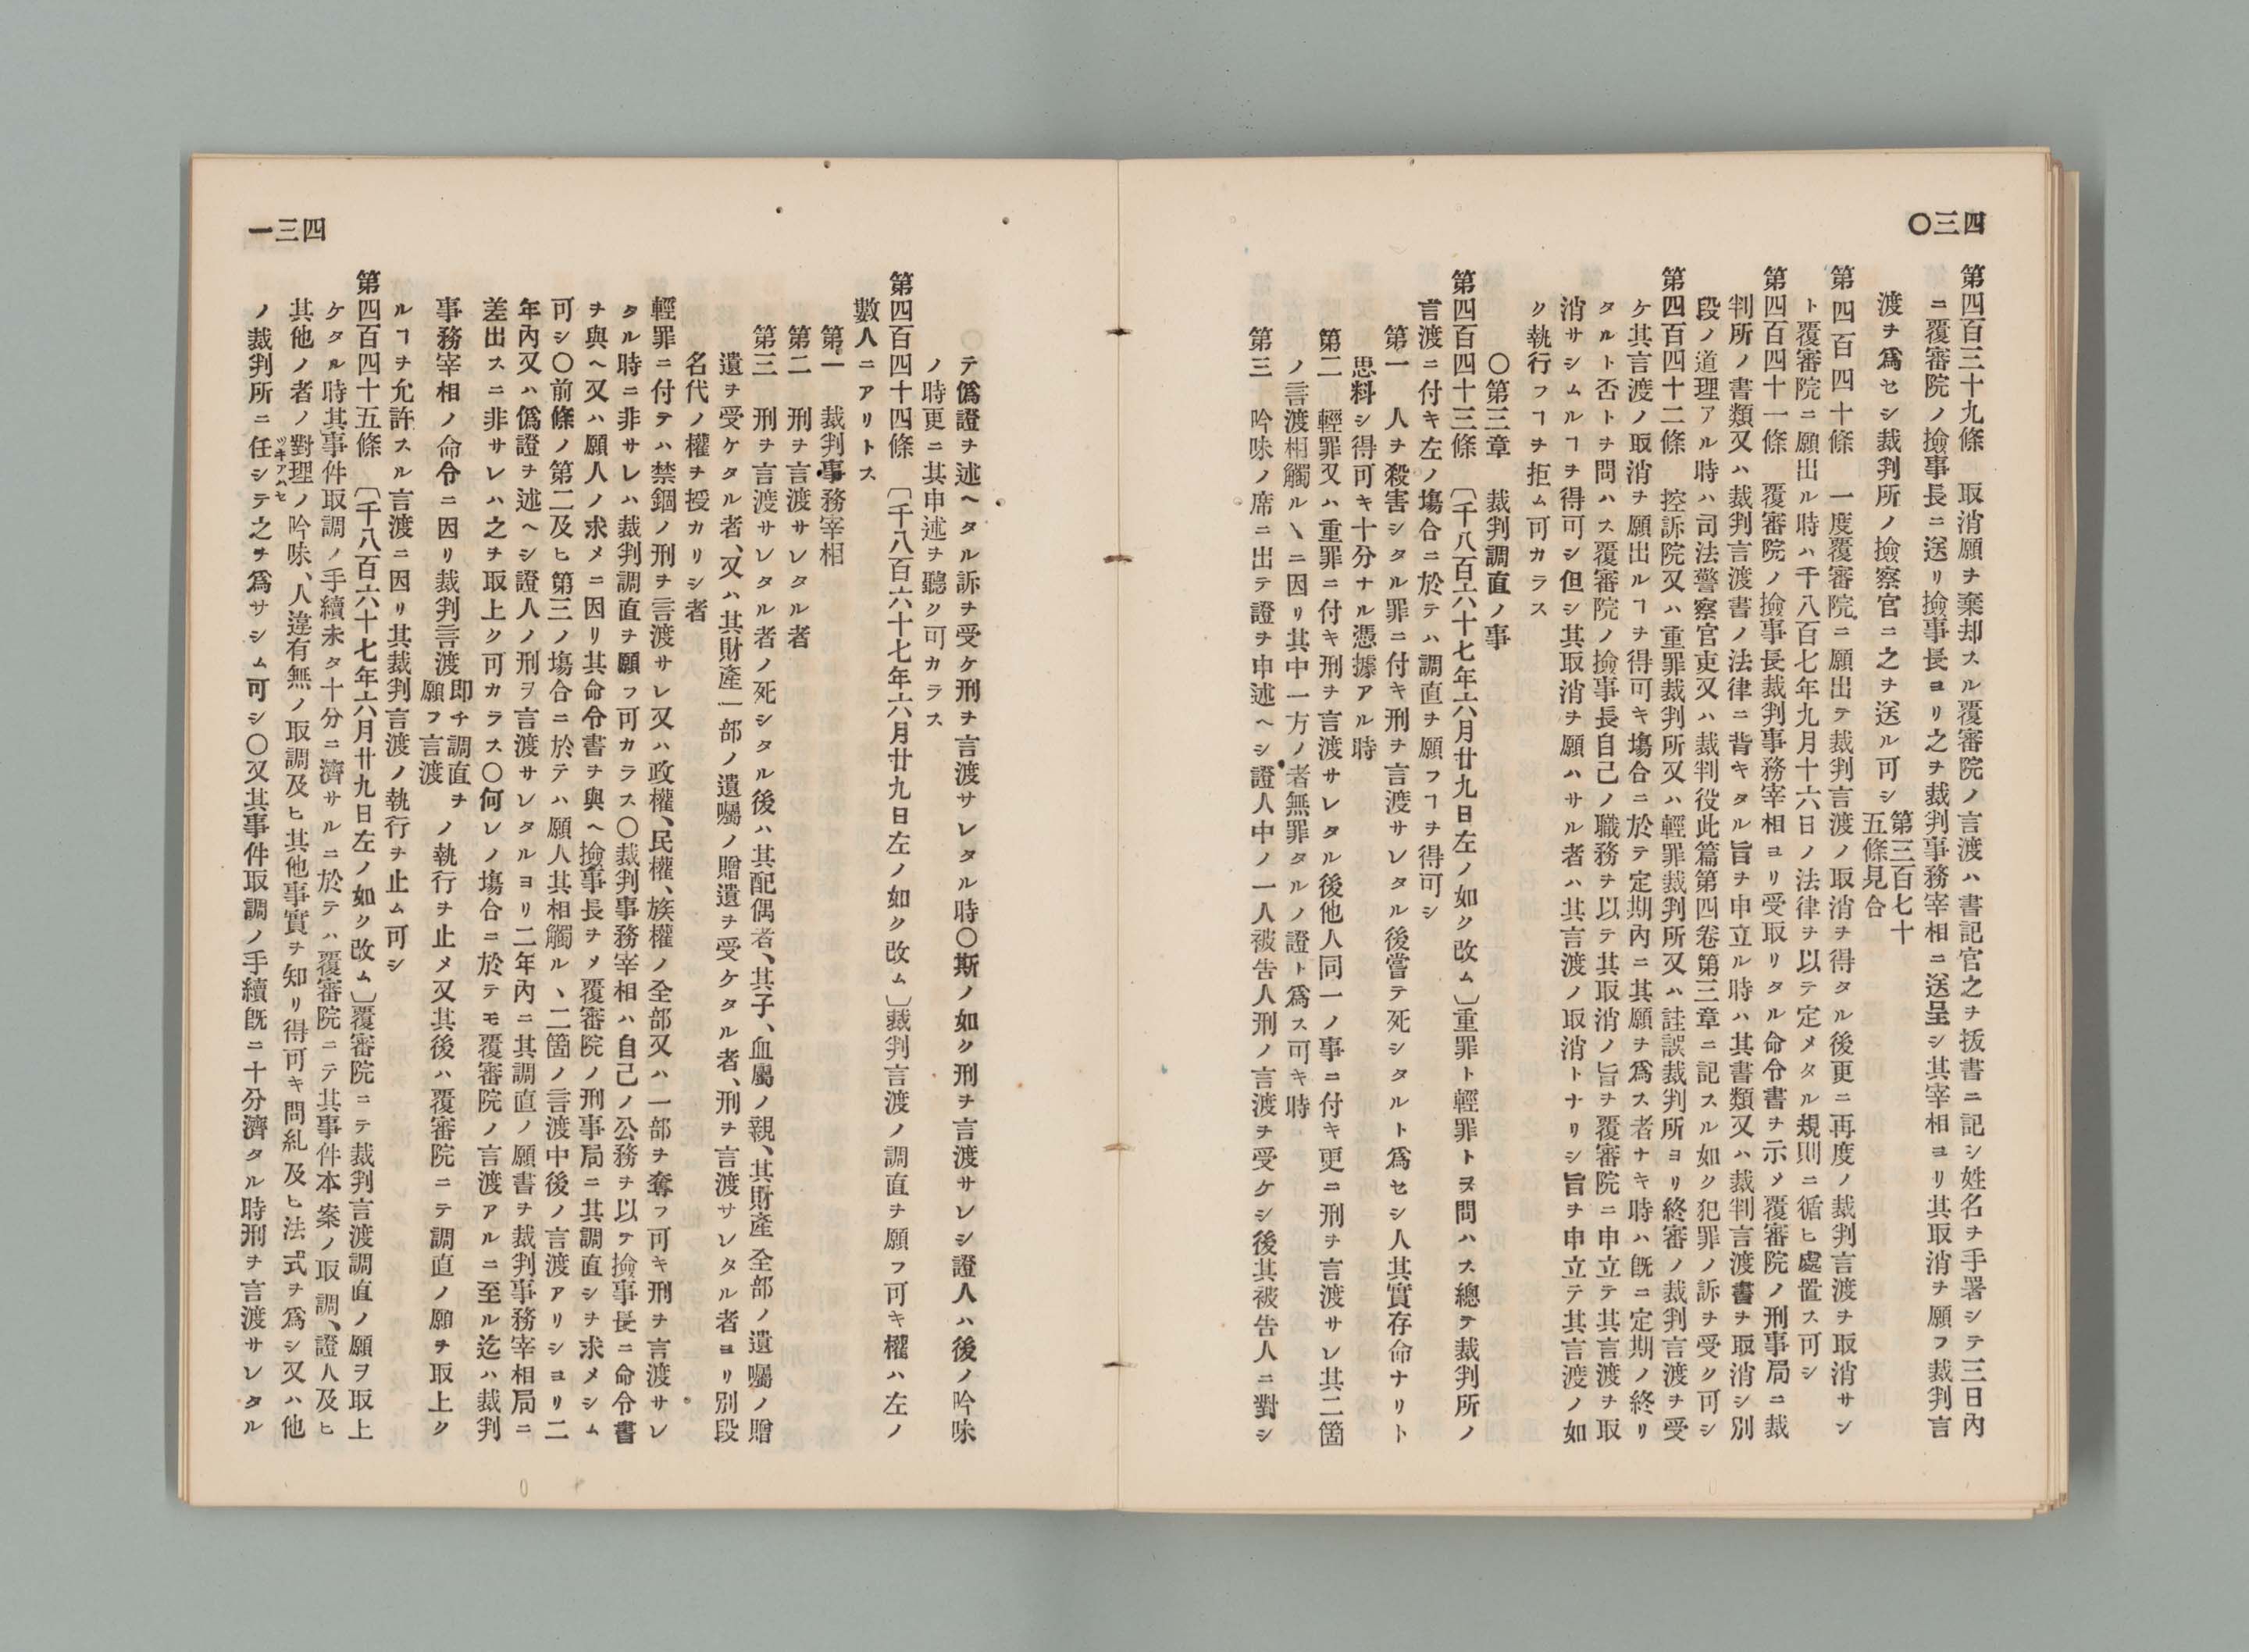 四三〇
第四百三十九條　取消願ヲ棄却スル覆審院ノ言渡ハ書記官之ヲ拔書ニ記シ姓名ヲ手署シテ三日內
ニ覆審院ノ撿事長ニ送リ撿事長ヨリ之ヲ裁判事務宰相ニ送呈シ其宰相ヨリ其取消ヲ願フ裁判言
渡ヲ爲セシ裁判所ノ撿察官ニ之ヲ送ル可シ
第三百七十
五條見合
第四百四十條　一度覆審院ニ願出テ裁判言渡ノ取消ヲ得タル後更ニ再度ノ裁判言渡ヲ取消サン
ト覆審院ニ願出ル時ハ千八百七年九月十六日ノ法律ヲ以テ定メタル規則ニ循ヒ處置ス可シ
第四百四十一條　覆審院ノ撿事長裁判事務宰相ヨリ受取リタル命令書ヲ示メ覆審院ノ刑事局ニ裁
判所ノ書類又ハ裁判言渡書ノ法律ニ背キタル旨ヲ申立ル時ハ其書類又ハ裁判言渡書ヲ取消シ別
段ノ道理アル時ハ司法警察官吏又ハ裁判役此篇第四卷第三章ニ記スル如ク犯罪ノ訴ヲ受ク可シ
第四百四十二條　控訴院又ハ重罪裁判所又ハ輕罪裁判所又ハ註誤裁判所ヨリ終審ノ裁判言渡ヲ受
ケ其言渡ノ取消ヲ願出ルヿヲ得可キ塲合ニ於テ定期內ニ其願ヲ爲ス者ナキ時ハ旣ニ定期ノ終リ
タルト否トヲ問ハス覆審院ノ撿事長自己ノ職務ヲ以テ其取消ノ旨ヲ覆審院ニ申立テ其言渡ヲ取
消サシムルヿヲ得可シ但シ其取消ヲ願ハサル者ハ其言渡ノ取消トナリシ旨ヲ申立テ其言渡ノ如
ク執行フヿヲ拒ム可カラス
〇第三章　裁判調直ノ事
第四百四十三條　〔千八百六十七年六月廿九日左ノ如ク改ム〕重罪ト輕罪トヲ問ハス總テ裁判所ノ
言渡ニ付キ左ノ塲合ニ於テハ調直ヲ願フヿヲ得可シ
第一　人ヲ殺害シタル罪ニ付キ刑ヲ言渡サレタル後嘗テ死シタルト爲セシ人其實存命ナリト
思料シ得可キ十分ナル憑據アル時
第二　輕罪又ハ重罪ニ付キ刑ヲ言渡サレタル後他人同一ノ事ニ付キ更ニ刑ヲ言渡サレ其二箇
ノ言渡相觸ルヽニ因リ其中一方ノ者無罪タルノ證ト爲ス可キ時
第三　吟味ノ席ニ出テ證ヲ申述ヘシ證人中ノ一人被告人刑ノ言渡ヲ受ケシ後其被告人ニ對シ
四三一
テ僞證ヲ述ヘタル訴ヲ受ケ刑ヲ言渡サレタル時〇斯ノ如ク刑ヲ言渡サレシ證人ハ後ノ吟味
ノ時更ニ其申述ヲ聽ク可カラス
第四百四十四條　〔千八百六十七年六月廿九日左ノ如ク改ム〕裁判言渡ノ調直ヲ願フ可キ權ハ左ノ
數人ニアリトス
第一　裁判事務宰相
第二　刑ヲ言渡サレタル者
第三　刑ヲ言渡サレタル者ノ死シタル後ハ其配偶者、其子、血屬ノ親、其財產全部ノ遺囑ノ贈
遺ヲ受ケタル者、又ハ其財產一部ノ遺囑ノ贈遺ヲ受ケタル者、刑ヲ言渡サレタル者ヨリ別段
名代ノ權ヲ授カリシ者
輕罪ニ付テハ禁錮ノ刑ヲ言渡サレ又ハ政權、民權、族權ノ全部又ハ一部ヲ奪フ可キ刑ヲ言渡サレ
タル時ニ非サレハ裁判調直ヲ願フ可カラス〇裁判事務宰相ハ自己ノ公務ヲ以テ撿事長ニ命令書
ヲ與ヘ又ハ願人ノ求メニ因リ其命令書ヲ與ヘ撿事長ヲメ覆審院ノ刑事局ニ其調直シヲ求メシム
可シ〇前條ノ第二及ヒ第三ノ塲合ニ於テハ願人其相觸ルヽ二箇ノ言渡中後ノ言渡アリシヨリ二
年內又ハ僞證ヲ述ヘシ證人ノ刑ヲ言渡サレタルヨリ二年內ニ其調直ノ願書ヲ裁判事務宰相局ニ
差出スニ非サレハ之ヲ取上ク可カラス〇何レノ塲合ニ於テモ覆審院ノ言渡アルニ至ル迄ハ裁判
事務宰相ノ命令ニ因リ裁判言渡
卽チ調直ヲ
願フ言渡
ノ執行ヲ止メ又其後ハ覆審院ニテ調直ノ願ヲ取上ク
ルヿヲ允許スル言渡ニ因リ其裁判言渡ノ執行ヲ止ム可シ
第四百四十五條　〔千八百六十七年六月廿九日左ノ如ク改ム〕覆審院ニテ裁判言渡調直ノ願ヲ取上
ケタル時其事件取調ノ手續未タ十分ニ濟サルニ於テハ覆審院ニテ其事件本案ノ取調、證人及ヒ
其他ノ者ノ對理ノ吟味、人違有無ノ取調及ヒ其他事實ヲ知リ得可キ問糺及ヒ法式ヲ爲シ又ハ他
ツキアハセ
ノ裁判所ニ任シテ之ヲ爲サシム可シ〇又其事件取調ノ手續旣ニ十分濟タル時刑ヲ言渡サレタル